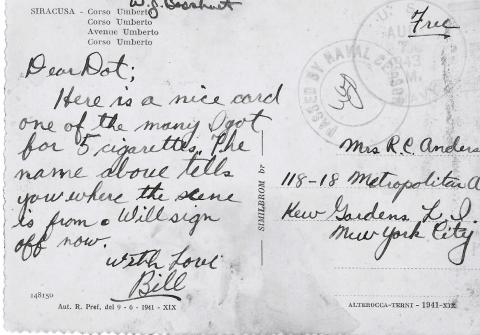 SIRACUSA - Corso Umberto
Corso Umberto
Avenue Umberto
Corso Umberto
W.J.
Free
U.S.
AUG
7
1943
M.
PASSED BY NAVAL CENSOR
Dear Dot;
Here is a nice card
one of the many I got
for 5 cigarettes. The
name above tells
you where the scene
is from. Will sign
off now.
With Love
Bill
Mrs R.C. Anders
118-18 Metropolitan A
Kew Gardens L.I.
New York City
SIMILBROM br
148150
Aut. R. Pref. del 9 - 6 - 1941 - XIX
ALTEROCCA-TERNI - 1941-XIX